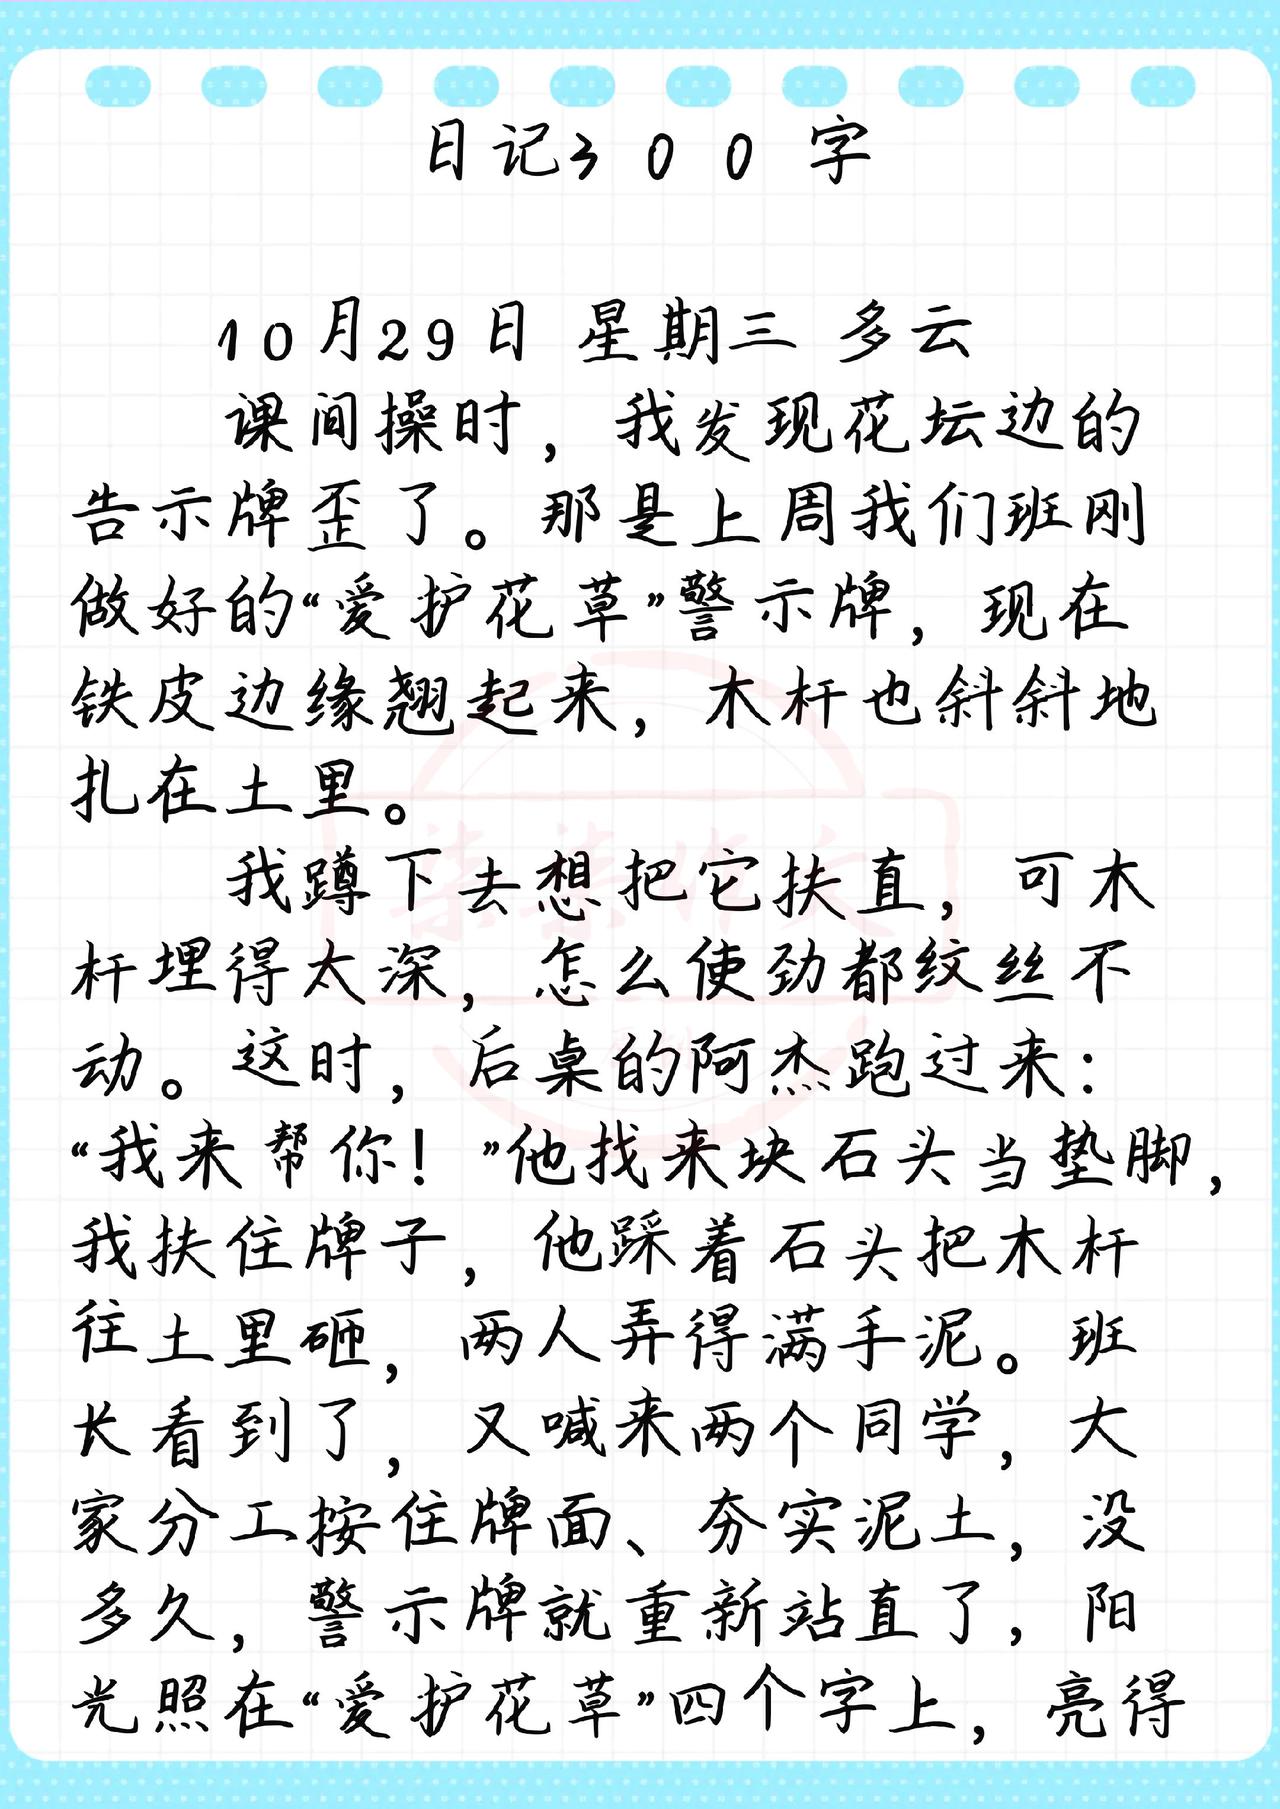 日记300字
10月29日 星期三 多云
课间操时，我发现花坛边的
告示牌歪了。那是上周我们班刚
做好的“爱护花草”警示牌，现在
铁皮边缘翘起来，木杆也斜斜地
扎在土里。
我蹲下去想把它扶直，可木
杆埋得太深，怎么使劲都纹丝不
动。这时，后桌的阿杰跑过来：
“我来帮你！”他找来块石头当垫脚，
我扶住牌子，他踩着石头把木杆
往土里砸，两人弄得满手泥。班
长看到了，又喊来两个同学，大
家分工按住牌面、夯实泥土，没
多久，警示牌就重新站直了，阳
光照在“爱护花草”四个字上，亮得